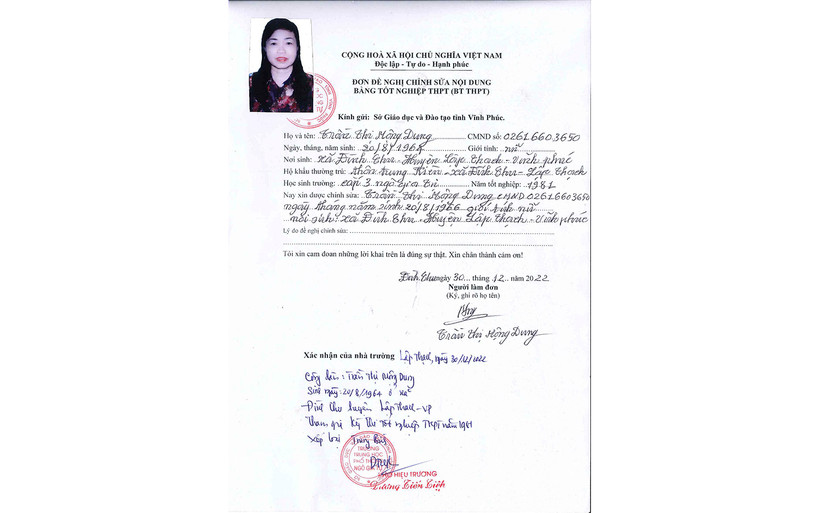 CỘNG HOÀ XÃ HỘI CHỦ NGHĨA VIỆT NAM
Độc lập - Tự do - Hạnh phúc
ĐƠN ĐỀ NGHỊ CHỈNH SỬA NỘI DUNG
BẰNG TỐT NGHIỆP THPT (BT THPT)
Kính gửi: Sở Giáo dục và Đào tạo tỉnh Vĩnh Phúc.
Họ và tên: Trần Thị Hồng Dung CMND số: 02616603650
Ngày, tháng, năm sinh: 20/8/1964 Giới tính: nữ
Nơi sinh: xã Đình Chu - Huyện Lập Thạch - Vĩnh phúc
Hộ khẩu thường trú: thôn trung Kiên - xã Đình Chu - Lập Thạch
Học sinh trường: cấp 3 ngô gia tự Năm tốt nghiệp: 1981
Nay xin được chỉnh sửa: Trần Thị Hồng Dung CMND 02616603650
ngày tháng năm sinh 20/8/1966 giới tính nữ
nơi sinh: xã Đình Chu - Huyện Lập Thạch - Vĩnh phúc
Lý do đề nghị chỉnh sửa:
Tôi xin cam đoan những lời khai trên là đúng sự thật. Xin chân thành cám ơn!
Đình Chu ngày 30 tháng 12 năm 2022
Người làm đơn
(Ký, ghi rõ họ tên)
Trần Thị Hồng Dung
Xác nhận của nhà trường Lập Thạch, ngày 30/12/2022
Trần Thị Hồng Dung
Sinh ngày: 20/8/1964 ở xã
Đình Chu huyện Lập Thạch - VP
Tham gia Kỳ thi tốt nghiệp THPT năm 1981
Xếp loại Trung bình
TRƯỜNG
TRUNG HỌC
PHỔ THÔNG
NGÔ GIA TỰ
HIỆU TRƯỞNG